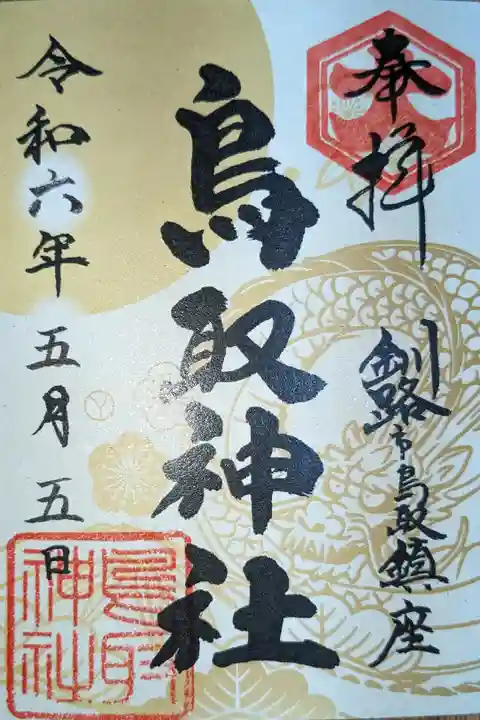 奉拝
釧路市鳥取鎮座
鳥取神社
令和六年五月五日
鳥取
神社